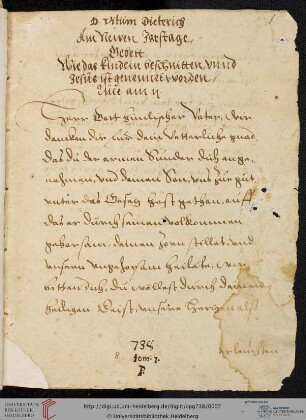 D. Vitum Dieterich
Am Newen Jarstage,
Gebett
Wie das kindein beschnitten, vnnd
Jesus ist genennet worden,
Luce am ij
1
Herr Gott himlischer Vater, wir
dancken dir für dein Vatterliche gnad,
das du der armen Sünder dich ange-
nohmen, vnd deinen Son, vns zu gut
vnter das Gesetz hast gethan, auff
das er durch seinen volkommen
gehorsam, deinen zorn stillet, vnd
vnsern vngehorsam heilete, wir
bitten dich, du wöllest durch deinen
heiligen Geist, vnsere hertzen also
erleuchten
738
8 tom. 7.
P
UNIVERSITÄTS-
BIBLIOTHEK
HEIDELBERG
http://digi.ub.uni-heidelberg.de/diglit/cpg738/0007
© Universitätsbibliothek Heidelberg